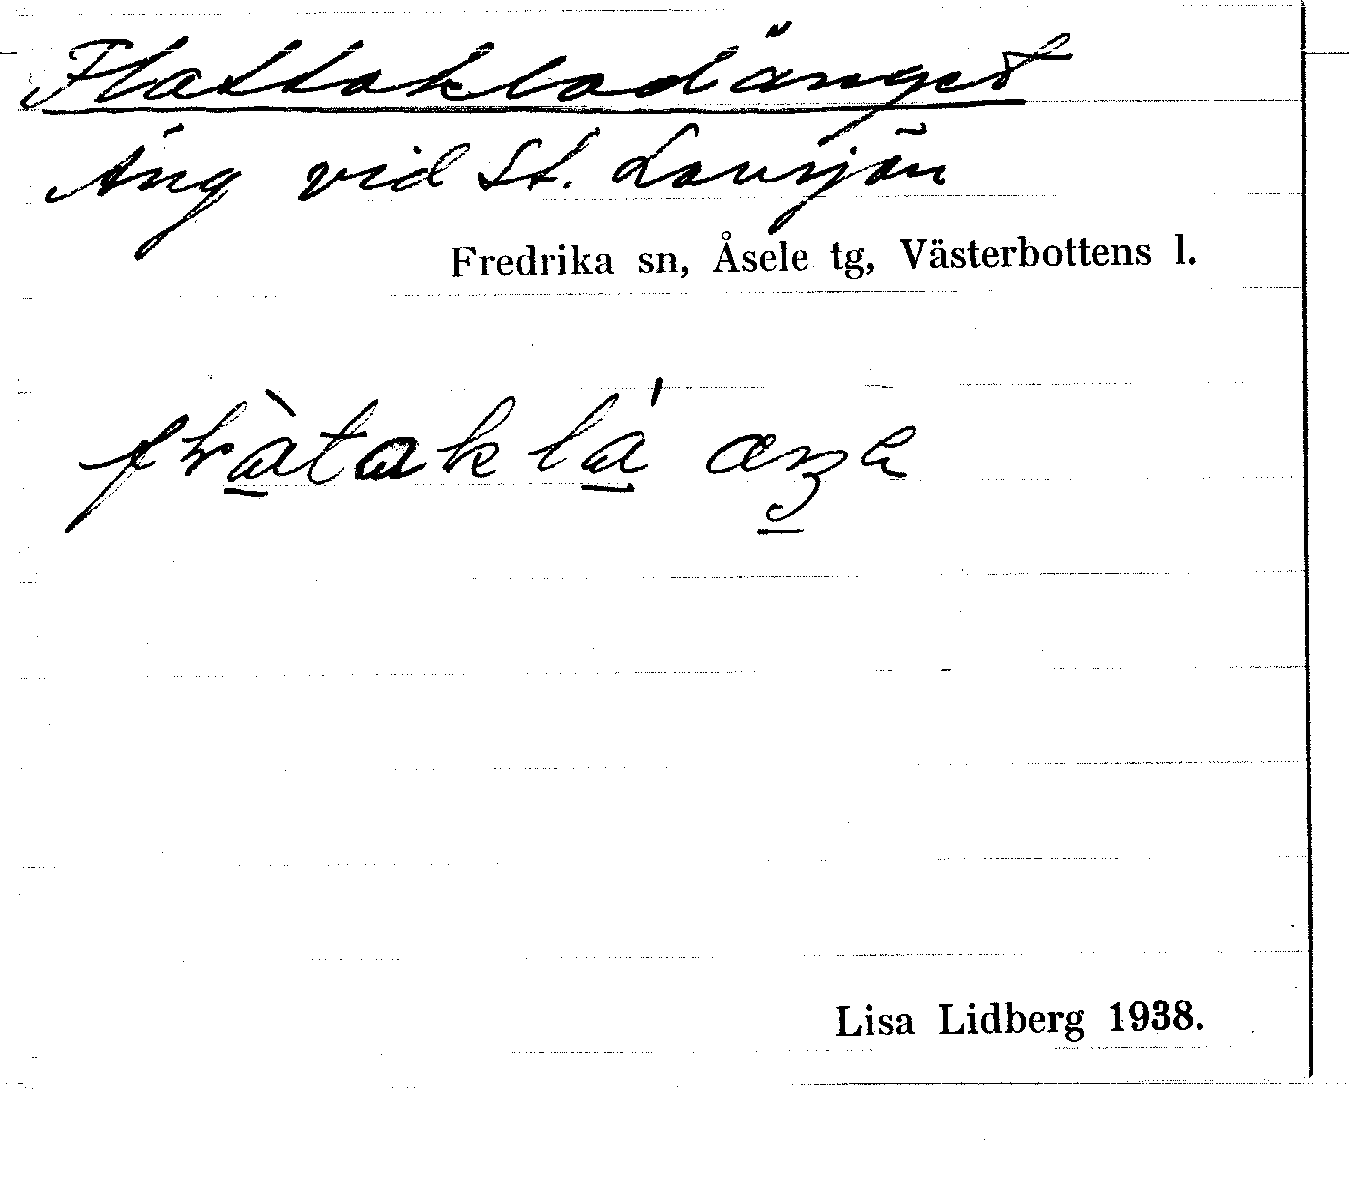 Flattakladänget
Äng vid St. Lavsjön
Fredrika sn, Åsele tg, Västerbottens l.
Lisa Lidberg 1938.